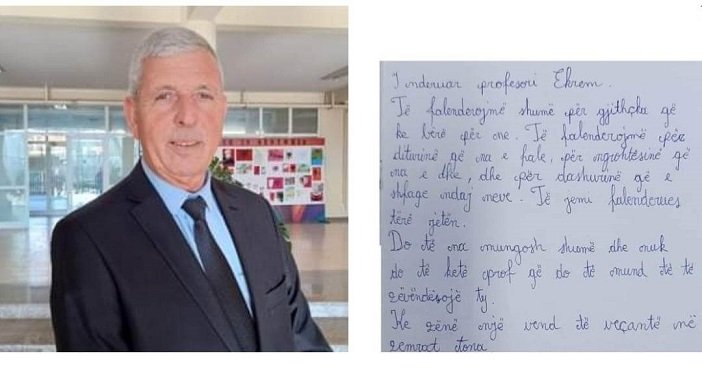 I nderuar profesori Ekrem.
Të falenderojmë shumë për gjithçka që
ke bërë për ne. Të falenderojmë për
diturinë që na e fale, për ngrohtësinë që
na e dhe, dhe për dashurinë që e
shfaqe ndaj neve. Të jemi falenderues
tërë jetën.
Do të na mungosh shumë dhe nuk
do të ketë prof që do të mund të të
zëvëndësojë ty.
Ke zënë një vend të veçantë në
zemrat tona